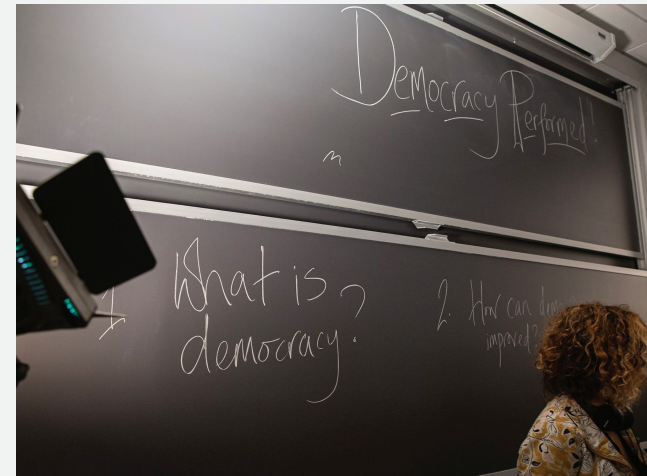 Democracy Performed!
1 What is
democracy?
2. How can
improved?